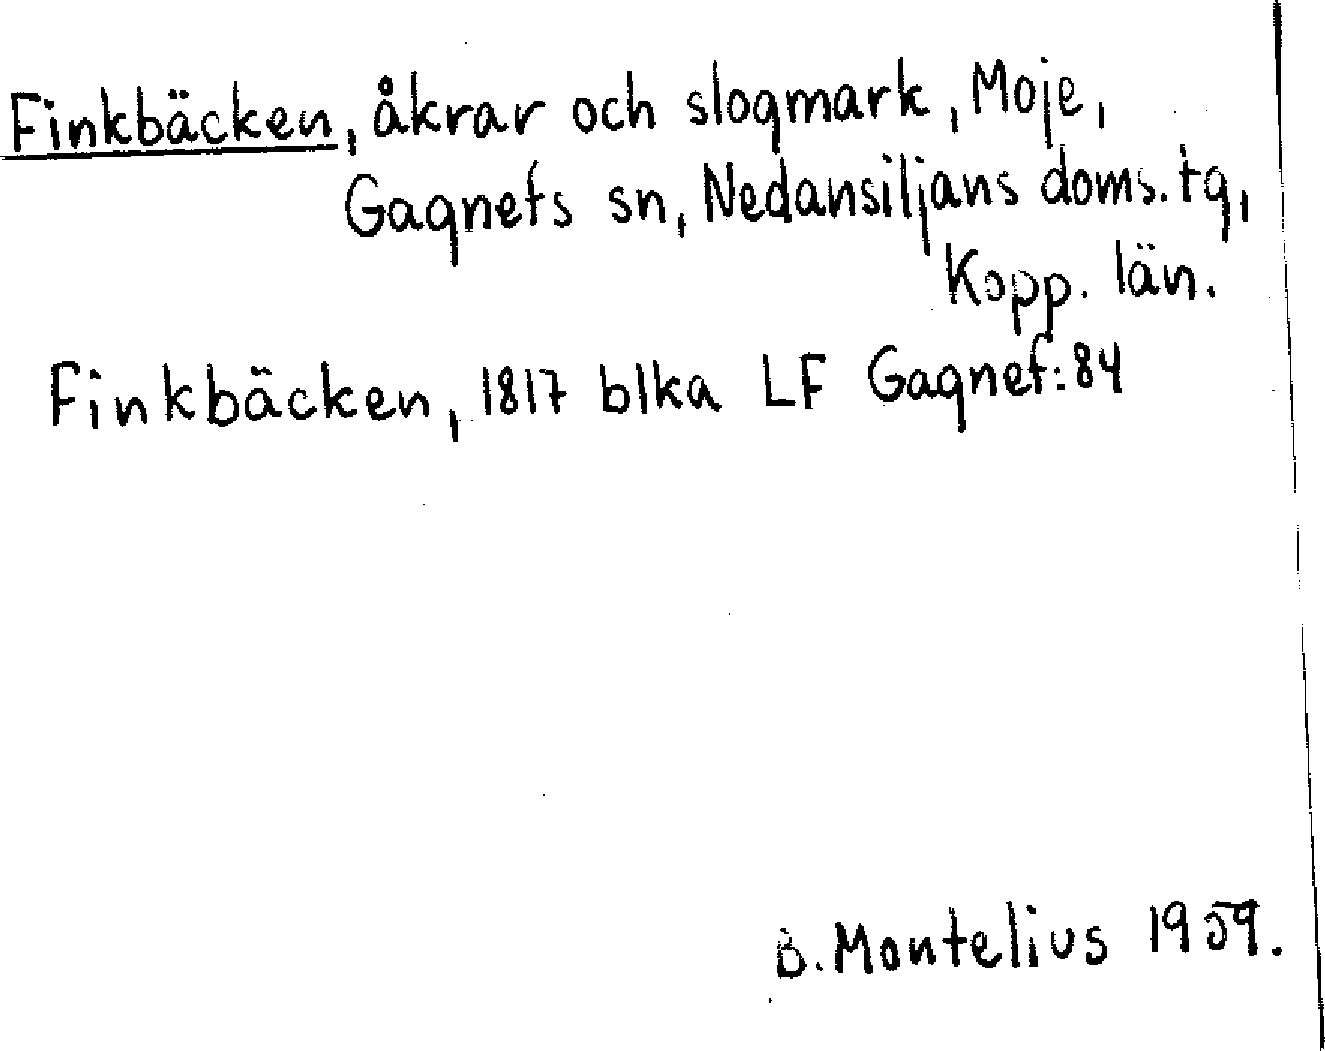 Finkbäcken, åkrar och slogmark, Moje,
Gagnefs sn, Nedansiljans doms. tg,
Kopp. län.
Finkbäcken, 1817 blka LF Gagnef:84
B. Montelius 1959.